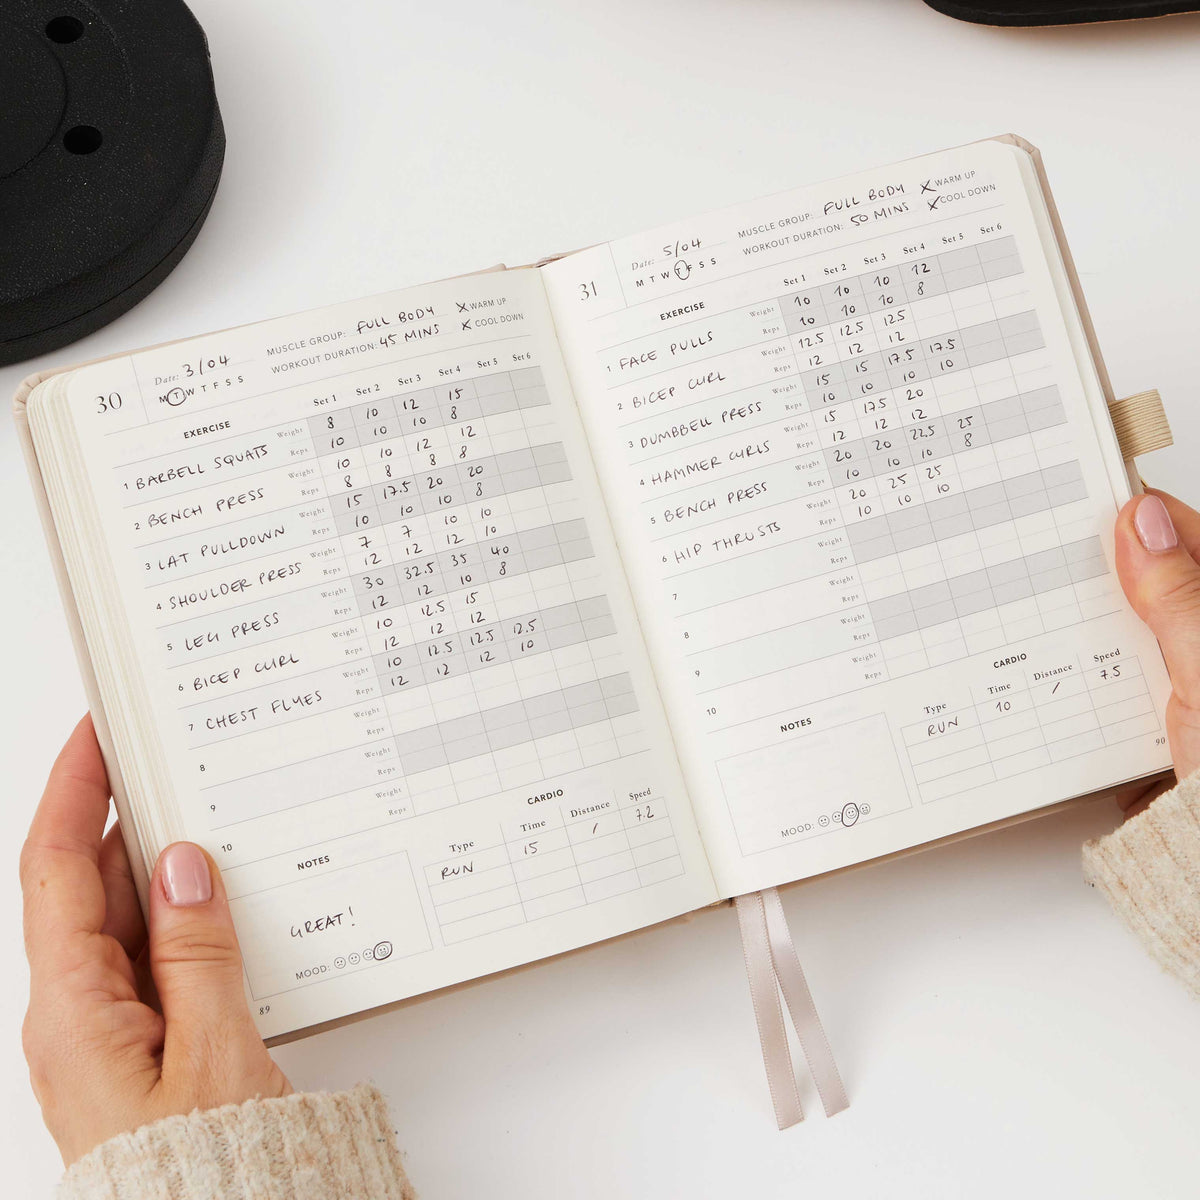 30
Date: 3/04
M T W T F S S
MUSCLE GROUP: FULL BODY
WORKOUT DURATION: 45 MINS
X WARM UP
X COOL DOWN
EXERCISE Set 1 Set 2 Set 3 Set 4 Set 5 Set 6
1 BARBELL SQUATS Weight 8 10 12 15
Reps 10 10 10 8
2 BENCH PRESS Weight 10 10 12 12
Reps 8 8 8 8
3 LAT PULLDOWN Weight 15 17.5 20 20
Reps 10 10 10 8
4 SHOULDER PRESS Weight 7 7 10 10
Reps 12 12 12 10
5 LEG PRESS Weight 30 32.5 35 40
Reps 12 12 10 8
6 BICEP CURL Weight 10 12.5 15
Reps 12 12 12
7 CHEST FLYES Weight 10 12.5 12.5 12.5
Reps 12 12 12 10
8 Weight
Reps
9 Weight
Reps
10 Weight
Reps
NOTES
GREAT!
MOOD:
CARDIO
Type Time Distance Speed
RUN 15 / 7.2
89
31
Date: 5/04
M T W T F S S
MUSCLE GROUP: FULL BODY
WORKOUT DURATION: 50 MINS
X WARM UP
X COOL DOWN
EXERCISE Set 1 Set 2 Set 3 Set 4 Set 5 Set 6
1 FACE PULLS Weight 10 10 10 12
Reps 10 10 10 8
2 BICEP CURL Weight 12.5 12.5 12.5
Reps 12 12 12
3 DUMBBELL PRESS Weight 15 15 17.5 17.5
Reps 10 10 10 10
4 HAMMER CURLS Weight 15 17.5 20
Reps 12 12 12
5 BENCH PRESS Weight 20 20 22.5 25
Reps 10 10 10 8
6 HIP THRUSTS Weight 20 25 25
Reps 10 10 10
7 Weight
Reps
8 Weight
Reps
9 Weight
Reps
10
NOTES
MOOD:
CARDIO
Type Time Distance Speed
RUN 10 / 7.5
90